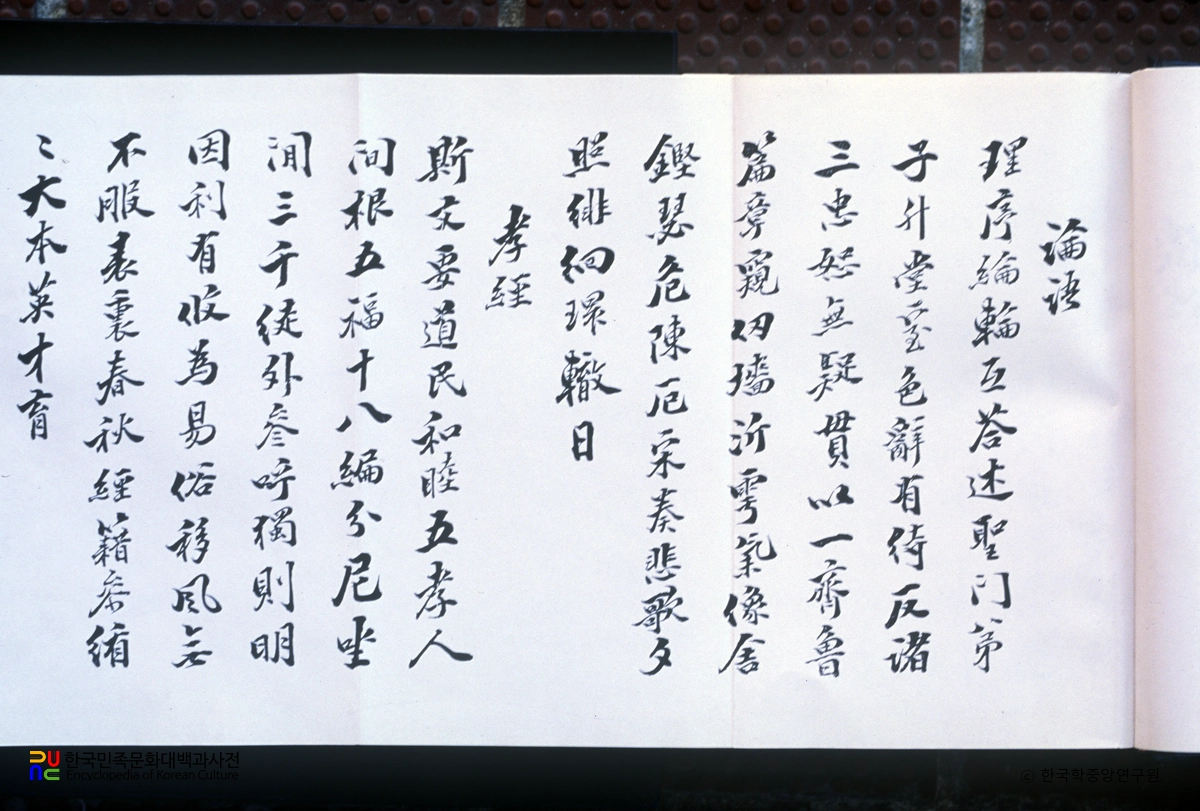 論語
理序綸輪互答述聖门第
子升堂㙜色辭有倚反諸
三忠恕無疑貫以一齊魯
篇章窺仞墻沂雩氣像舍
鏗瑟危陳厄宋奏悲歌夕
照徘徊環轍日
孝經
斯文要道民和睦五孝人
间根五福十八編分尼坐
閒三千徒外參呼獨則明
因利有收為易俗移風無
不服表裏春秋經籍
〻大本英才育
한국민족문화대백과사전
Encyclopedia of Korean Culture
© 한국학중앙연구원